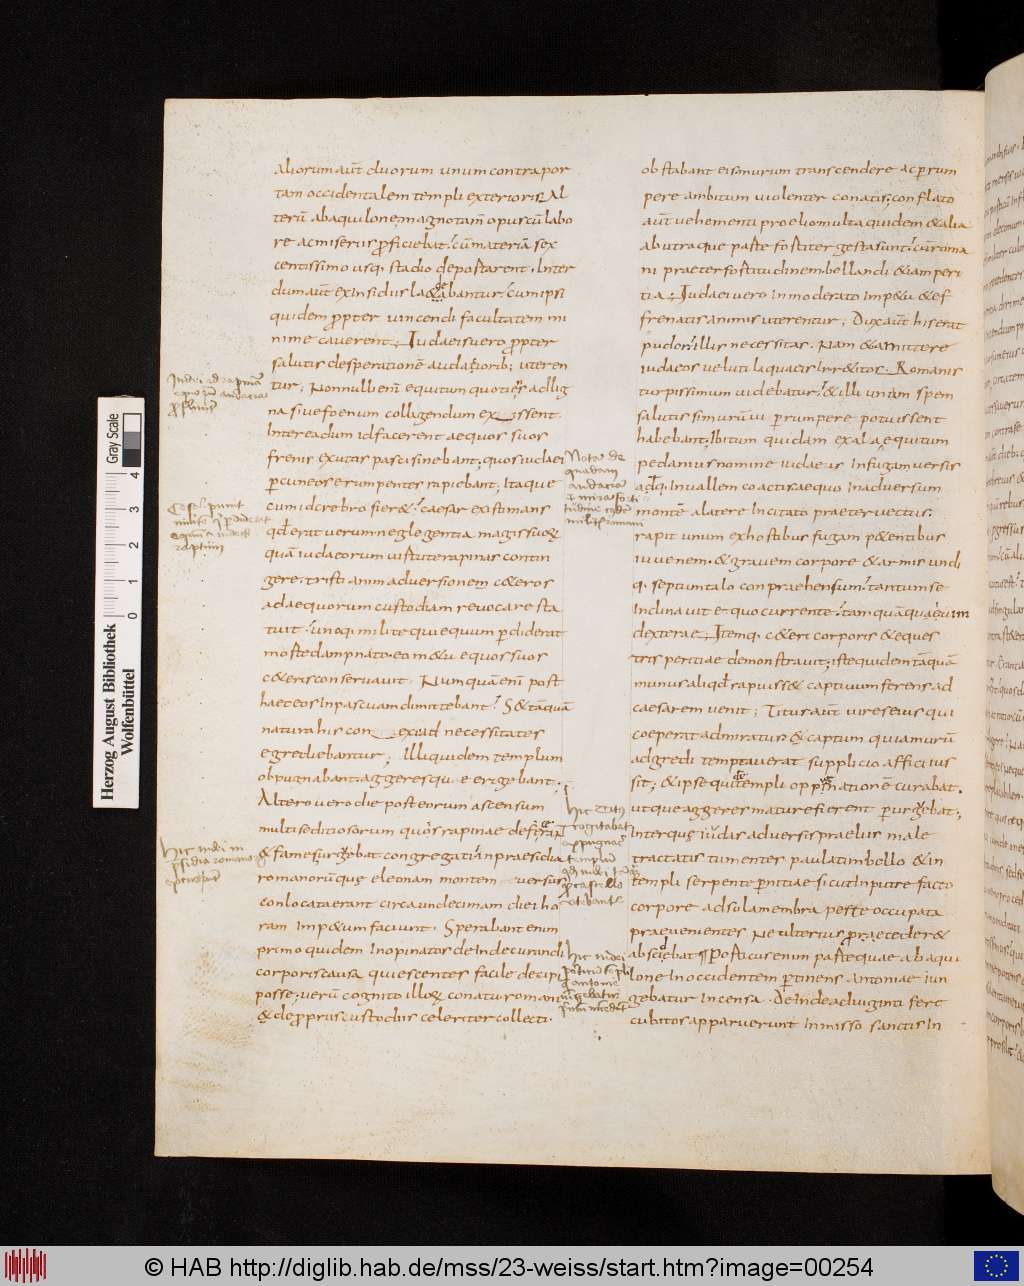 aliorum aut̄ duorum unum contra por
tam occidentalem templi exterioris Al
terū abaquilone magno tam̄ opus cū labo
re ac miseriis ꝓficiebat cū materiā sex
centissimo usq; stadio deportarent. Inter
dum aut̄ ex insidiis laedebantur cum ipsi
quidem ꝓpter uincendi facultatem mi
nime cauerent; Iudaeis uero ꝓpter
salutis desperationē audatiorib; uteren
tur; Nonnulli eni equitum quotiens ad lig
na siue foenum colligendum exissent
Interea dum id facerent aequos suos
frenis exutis pasci sinebant; quos iudaei
ꝑ cuneos erumpentes rapiebant; Itaque
cum id crebro fier& caesar existimans
qđ erat uerum neglegentia magis suoꝝ
quā iudaeorum uirtute rapinas contin
gere tristi animaduersionem c&eros
ad aequorum custodiam reuocare sta
tuit unoq; milite qui equum ꝑdiderat
morte dampnato eo m&u equos suos
c&eris conseruauit. Numquā eni post
haec eos In pascuam dimittebant; S& tāquā
naturalis con exiad necessitates
egrediebantur; Illi quidem templum
obpugnabant aggeresque erigebant;
Altero uero die post eorum ascensum
multi seditiosorum quos rapinae deficerant
& fames urgebat congregati in praesidia
romanorū que eleonam montem uersus
conlocata erant circa undecimam diei ho
ram Imp&um faciunt. Sperabant enim
primo quidem Inopinatos deinde curandi
corporis causa quiescentes facile decipi
posse; uerū cognito illoꝝ conatu romani
& de ꝓpriis custodiis celeriter collecti
obstabant eis murum transcendere ac ꝑrum
pere ambitum uiolenter conatis; conflato
aut̄ uehementi proelio multa quidem & alia
ab utraque parte fortiter gesta sunt cū roma
ni praeter fortitudinem bellandi & iam peri
tia; Iudaei uero Inmoderato Imp&u & ef
frenatis animis uterentur; Dux aut̄ his erat
pudor illis necessitas. Nam & amittere
iudaeos ueluti laqueis Inr&itos. Romanis
turpissimum uidebatur & illi unam spem
salutis si murum ui ꝑrumpere potuissent
habebant; Ibi tum quidam ex ala equitum
pedanius nomine iudaeis In fugam uersis
ad q; In uallem coactis aequo In aduersum
montē a latere Incitato praeteruectus
rapit unum ex hostibus fugam p&entibus
iuuenem & grauem corpore & armis undi
q; septum talo conpraehensum tantum se
Inclinauit equo currente tam quā quae uim
dexterae; Itemq; c&eri corporis & eques
tris peritiae demonstrauit; iste quidem tāquā
munus aliqđ rapuiss& captiuum ferens ad
caesarem uenit; Titus aut̄ uires eius qui
coeperat admiratus & captum quia murū
adgredi temptauerat supplicio affici ius
sit; & ipse qui templi oppugnationē curabat
utque aggeres mature fierent ꝑurgebat;
Interque iudaei aduersis praeliis male
tractatis tumentes paulatim bello & in
templi serpente ꝑnitiae sicut In putre facto
corpore adsola membra peste occupata
praeuenientes Ne ulterius ꝓpraeceder&
abscidebat Porticus enim parte quae ab aqui
lone In occidentem ꝑtinens Antoniae iun
gebatur Incensa. Deinde ad uiginti fere
cubitos apparuerunt Inmisso sanctis In
Iudei ad rapinā
Nota de
quadam
audacia
et mira forti
tudine
militis romani
Hic titus
cogitabat
expugnare
templum
Hic iudei
Herzog August Bibliothek
Wolfenbüttel
0 1 2 3 4
Gray Scale
© HAB http://diglib.hab.de/mss/23-weiss/start.htm?image=00254